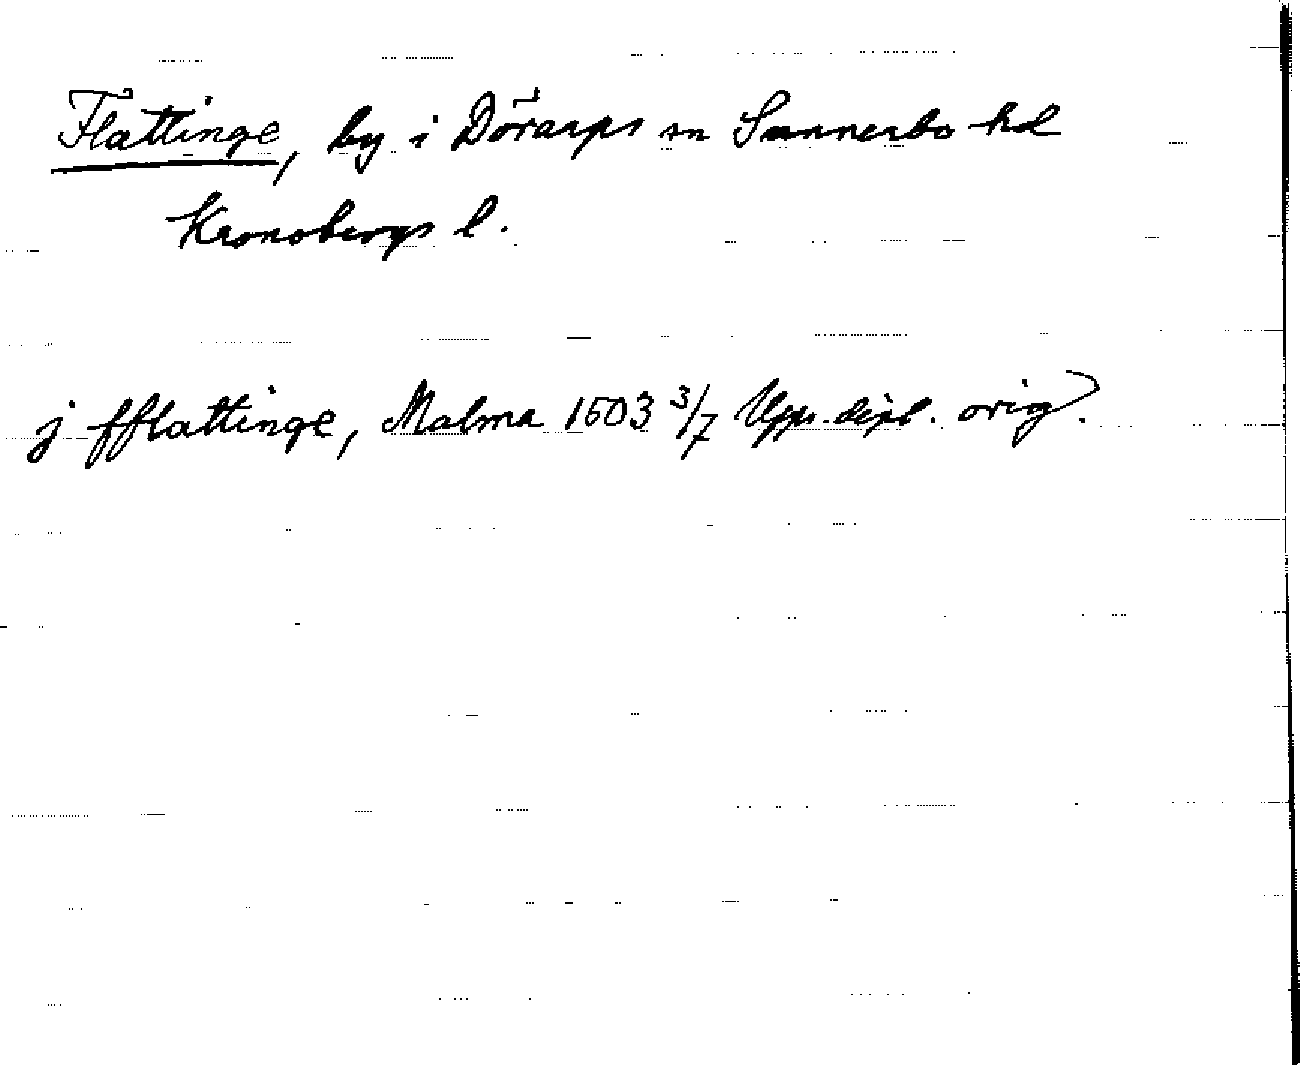 Flattinge, by i Dörarps sn Sunnerbo hd
Kronobergs l.
j fflattinge, Malma 1503 3/7 Upps. dipl. orig.